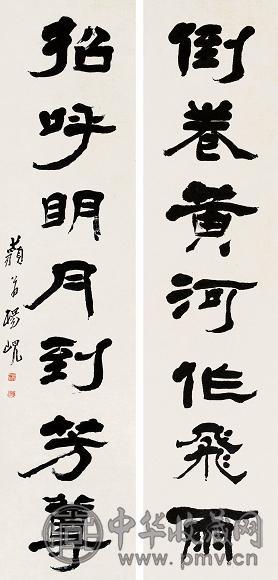 倒卷黄河作飛雨
招呼明月到芳尊
藐翁楊峴
中华收藏网
www.pmv.cn